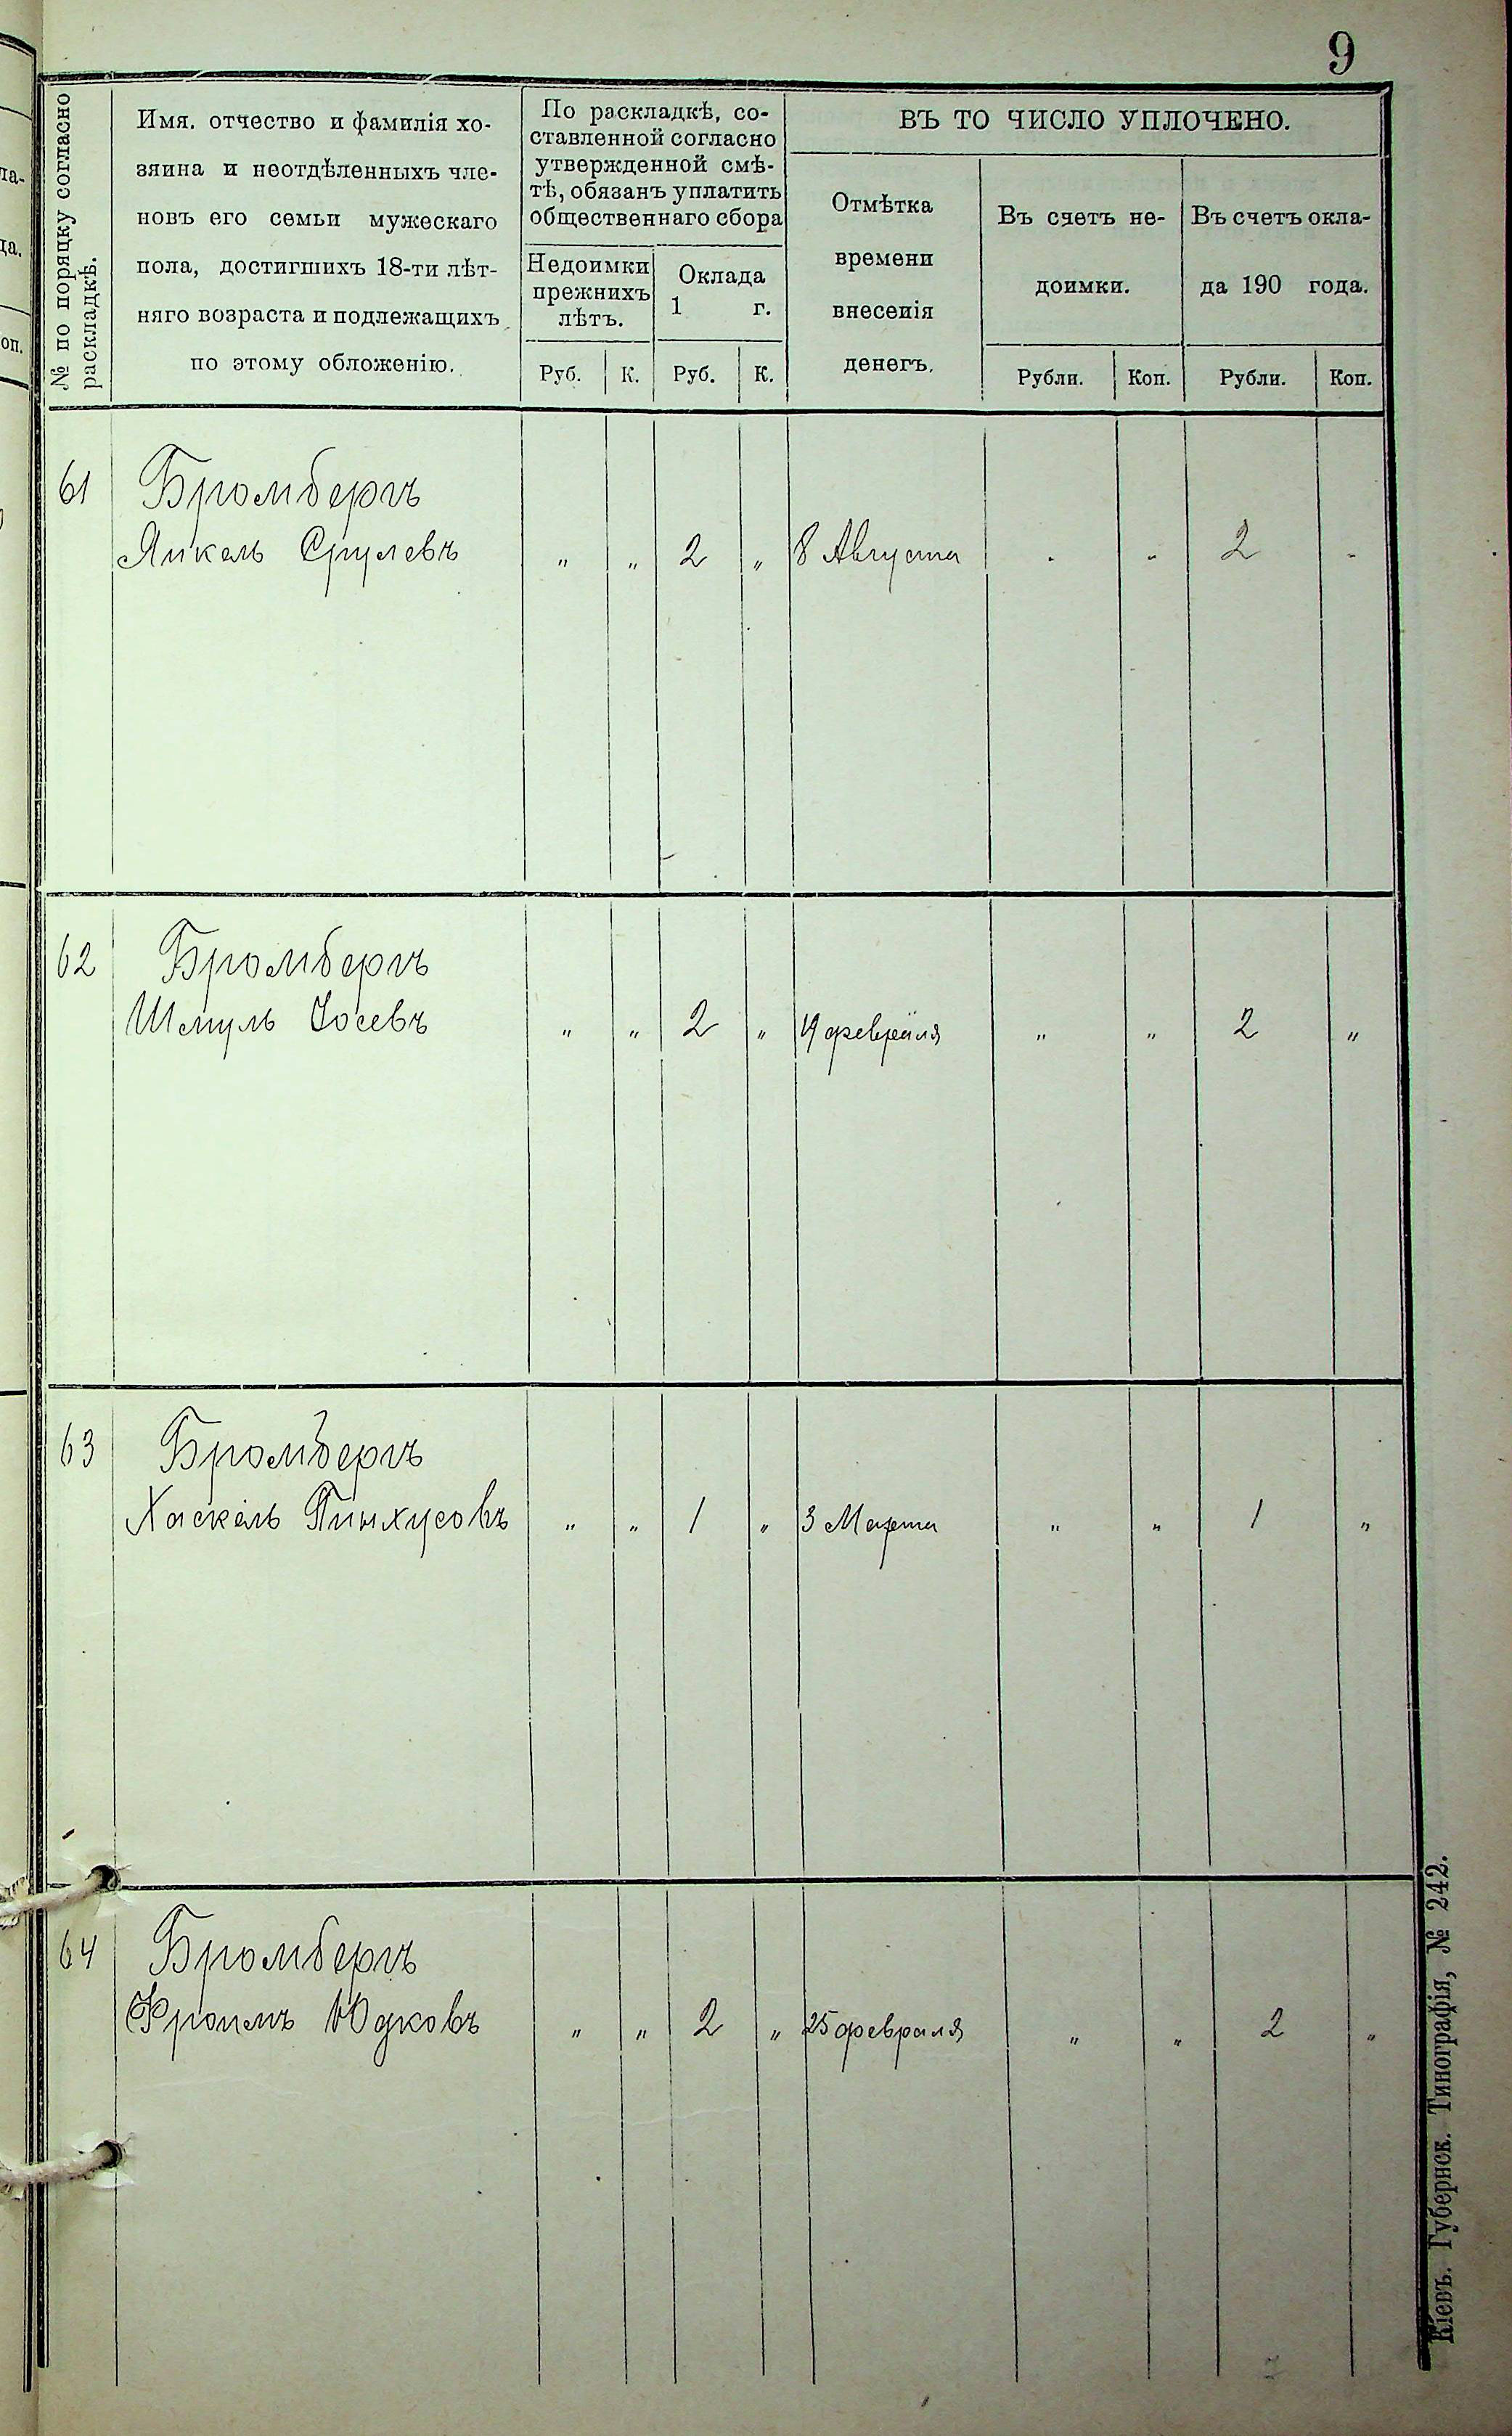 9
№ по поряцку согласно
раскладкѣ.
Имя. отчество и фамилія хо-
зяина и неотдѣленныхъ чле-
новъ его семьи мужескаго
пола, достигшихъ 18-ти лѣт-
няго возраста и подлежащихъ
по этому обложенію.
По раскладкѣ, со-
ставленной согласно
утвержденной смѣ-
тѣ, обязанъ уплатить
общественнаго сбора
Недоимки
прежнихъ
лѣтъ.
Оклада
1 г.
Руб. К. Руб. К.
ВЪ ТО ЧИСЛО УПЛОЧЕНО.
Отмѣтка
времени
внесенія
денегъ.
Въ счетъ не-
доимки.
Въ счетъ окла-
да 190 года.
Рубли. Коп. Рубли. Коп.
61 Бромбергъ
Янкель Срулевъ " " 2 " 8 Августа - - 2 -
62 Бромбергъ
Шмуль Іосевъ " " 2 " 19 февраля " " 2 "
63 Бромбергъ
Хаскель Пинхусовъ " " 1 " 3 Марта " " 1 "
64 Бромбергъ
Фроимъ Юдковъ " " 2 " 25 февраля " " 2 "
Кіевъ. Губернск. Типографія, № 242.